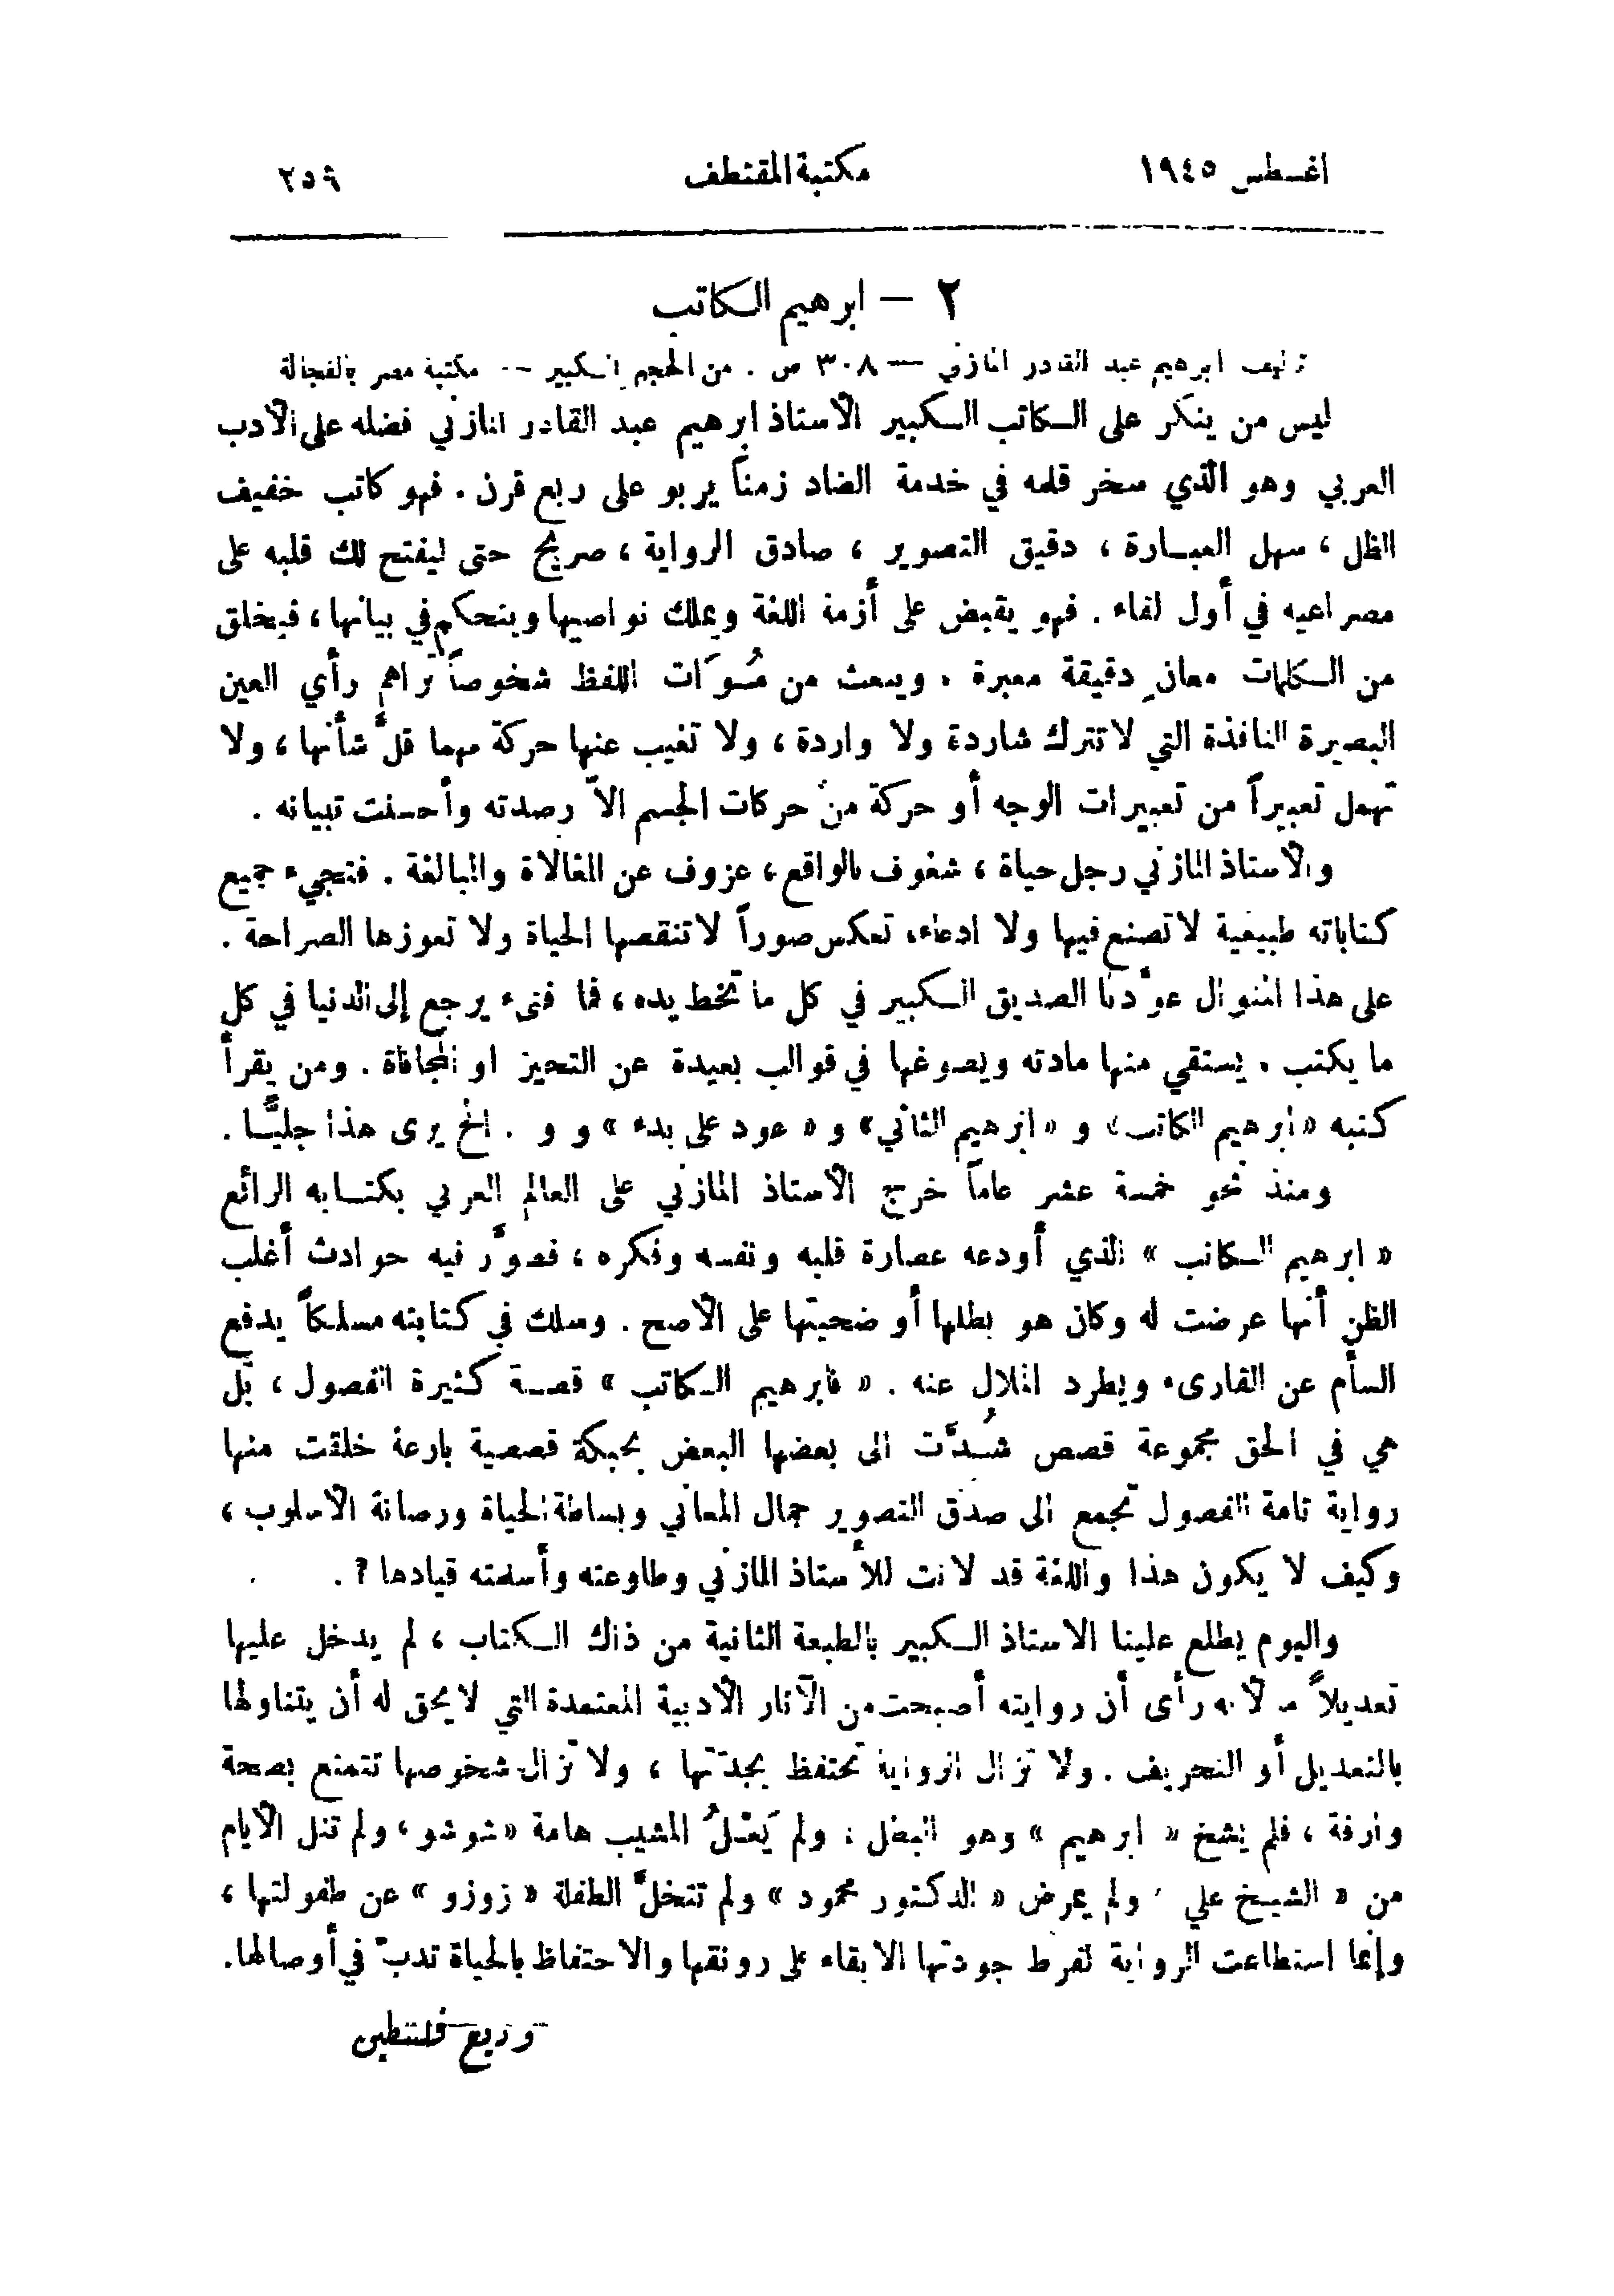 اغسطس ١٩٤٥ مكتبة المقتطف ٢٥٩
٢ — ابرهيم الكاتب
تأليف ابرهيم عبد القادر المازني — ٣٠٨ ص . من الحجم الكبير -- مكتبة مصر بالفجالة
ليس من ينكر على الكاتب الكبير الأستاذ ابرهيم عبد القادر المازني فضله على الأدب
العربي وهو الذي سخر قلمه في خدمة الضاد زمناً يربو على ربع قرن . فهو كاتب خفيف
الظل ، سهل العبارة ، دقيق التصوير ، صادق الرواية ، صريح حتى ليفتح لك قلبه على
مصراعيه في أول لقاء . فهو يقبض على أزمة اللغة ويملك نواصيها ويتحكم في بيانها ، فيخلق
من الكلمات معانٍ دقيقة معبرة . ويبعث من اللفظ شخوصاً تراهم رأي العين
البصيرة النافذة التي لا تترك شاردة ولا واردة ، ولا تغيب عنها حركة مهما قلّ شأنها ، ولا
تهمل تعبيراً من تعبيرات الوجه أو حركة من حركات الجسم الاّ رصدته وأحسنت تبيانه .
والأستاذ المازني رجل حياة ، شغوف بالواقع ، عزوف عن المغالاة والمبالغة . فتجيء جميع
كتاباته طبيعية لا تصنع فيها ولا ادعاء، تعكس صوراً لا تنقصها الحياة ولا تعوزها الصراحة .
على هذا المنوال عوّدنا الصديق الكبير في كل ما تخط يده ، فما فتىء يرجع إلى الدنيا في كل
ما يكتب . يستقي منها مادته ويصوغها في قوالب بعيدة عن التحيز او المجافاة . ومن يقرأ
كتبه «ابرهيم الكاتب» و «ابرهيم الثاني» و « عود على بدء » و و . الخ يرى هذا جليًّا .
ومنذ نحو خمسة عشر عاماً خرج الأستاذ المازني على العالم العربي بكتابه الرائع
« ابرهيم الكاتب » الذي أودعه عصارة قلبه ونفسه وفكره ، فصوّر فيه حوادث أغلب
الظن أنها عرضت له وكان هو بطلها أو ضحيتها على الأصح . وسلك في كتابته مسلكاً يدفع
السأم عن القارىء ويطرد الملال عنه . « فابرهيم الكاتب » قصة كثيرة الفصول ، بل
هي في الحق مجموعة قصص شُدَّت الى بعضها البعض بحبكة قصصية بارعة خلقت منها
رواية تامة الفصول تجمع الى صدق التصوير جمال المعاني وبساطة الحياة ورصانة الأسلوب ،
وكيف لا يكون هذا واللغة قد لانت للأستاذ المازني وطاوعته وأسلمته قيادها ? .
واليوم يطلع علينا الاستاذ الكبير بالطبعة الثانية من ذاك الكتاب ، لم يدخل عليها
تعديلاً ما لأنه رأى أن روايته أصبحت من الآثار الأدبية المعتمدة التي لا يحق له أن يتناولها
بالتعديل أو التحريف . ولا تزال الرواية تحتفظ بجدّتها ، ولا تزال شخوصها تتمتع بصحة
وارفة ، فلم يشخ « ابرهيم » وهو البطل ، ولم يَعْلُ المشيب هامة «شوشو، ولم تنل الأيام
من « الشيخ علي ، ولم يمرض « الدكتور محمود » ولم تتخلّ الطفلة « زوزو » عن طفولتها ،
وإنما استطاعت الرواية لفرط جودتها الابقاء على رونقها والاحتفاظ بالحياة تدبّ في أوصالها.
وديع فلسطين